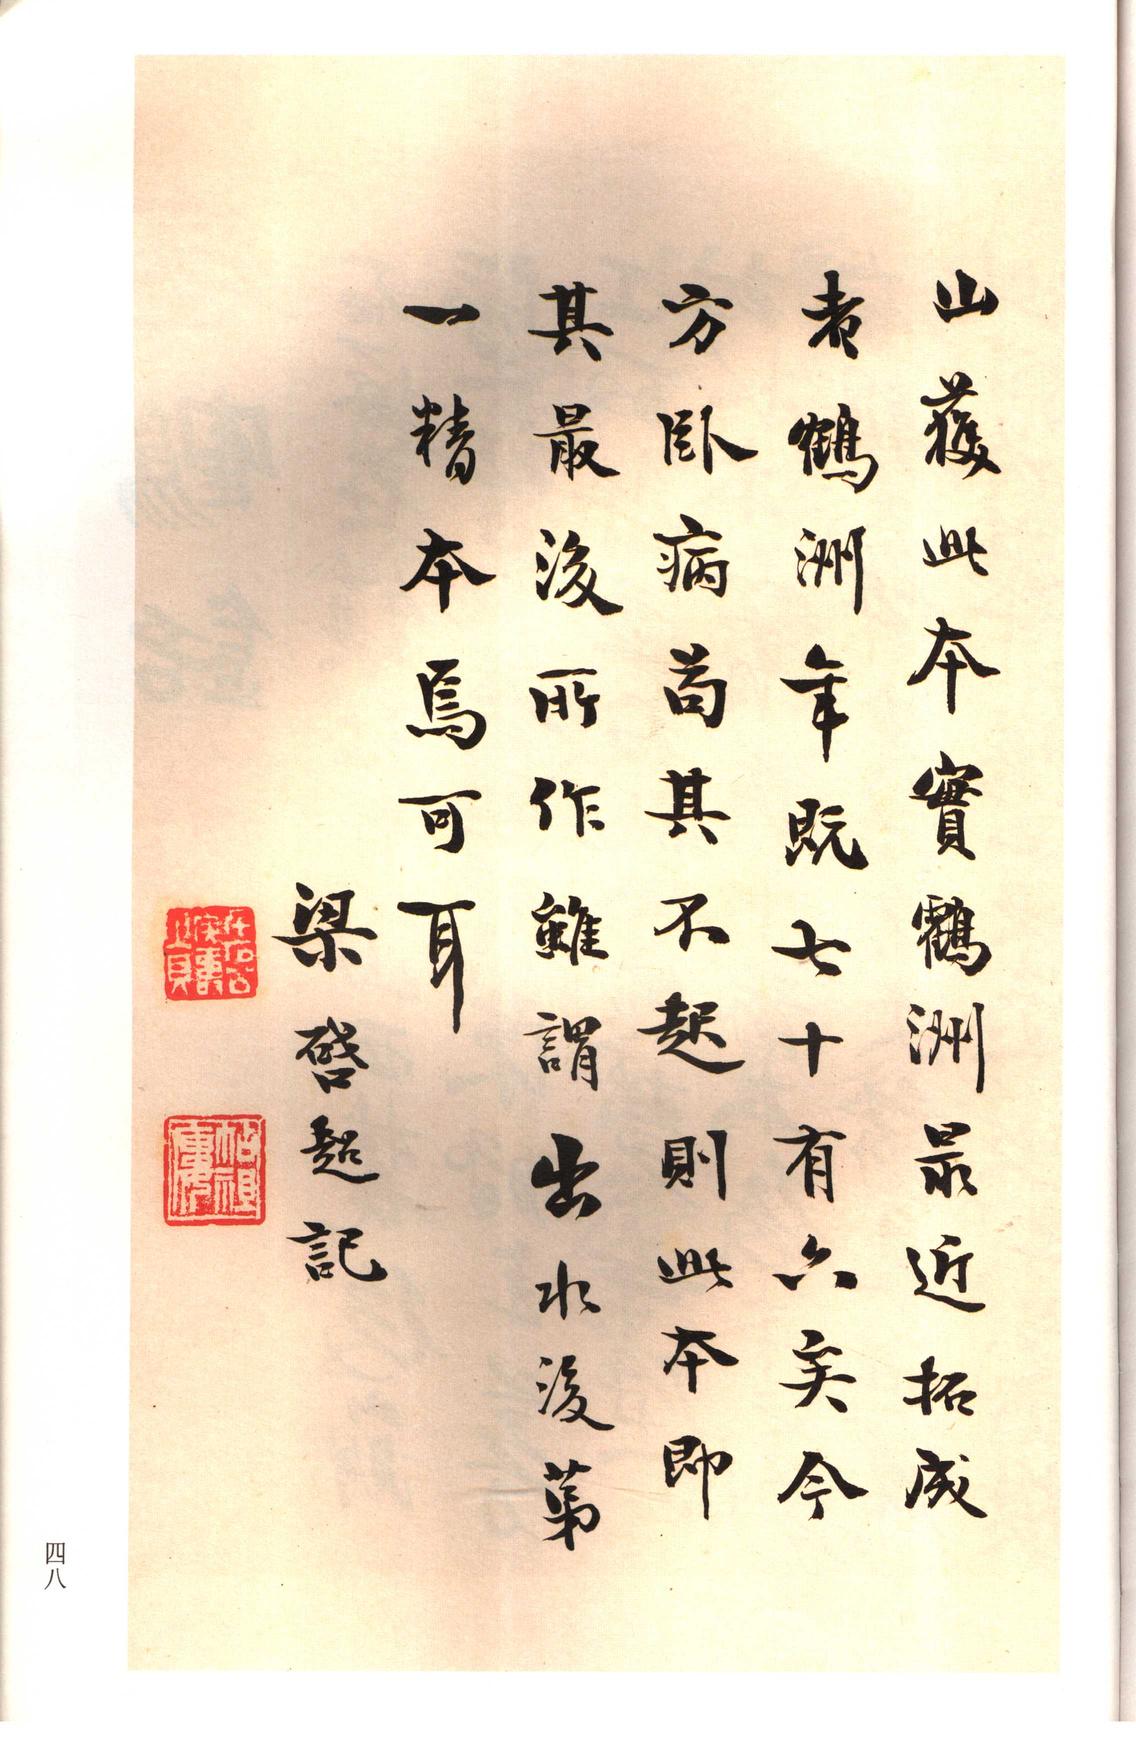 山獲此本實鶴洲最近拓成
者鶴洲年既七十有六矣今
方臥病苟其不起則此本即
其最後所作雖謂出水後第
一精本焉可耳
梁啓超記
四八